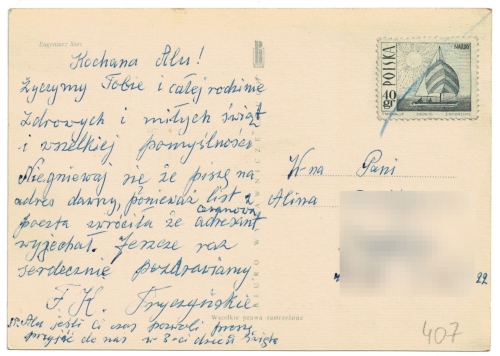 Eugeniusz Stec
Kochana Alu!
życzymy Tobie i całej rodzinie
zdrowych i miłych świąt
i wszelkiej pomyślności
Niegniewaj się że piszę na
adres dawny, ponieważ list z
poczta zwróciła że adresant
wyjechał. Jeszcze raz
serdecznie pozdrawiamy
F. K.
Ps. Alu jeśli Ci czas pozwoli proszę
przyjść do nas w 3-ci dzień święta
BIURO
Wszelkie prawa zastrzeżone
POLSKA
40 gr
W-na Pani
Alina
22
407